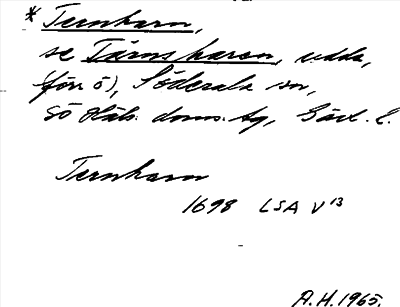 * Ternharn,
se Tärnsharen, udde,
(förr ö), Söderala sn,
Sö Häls. doms. tg, Gävl. l.
Ternharn
1698 LSA V 13
A.H. 1965.